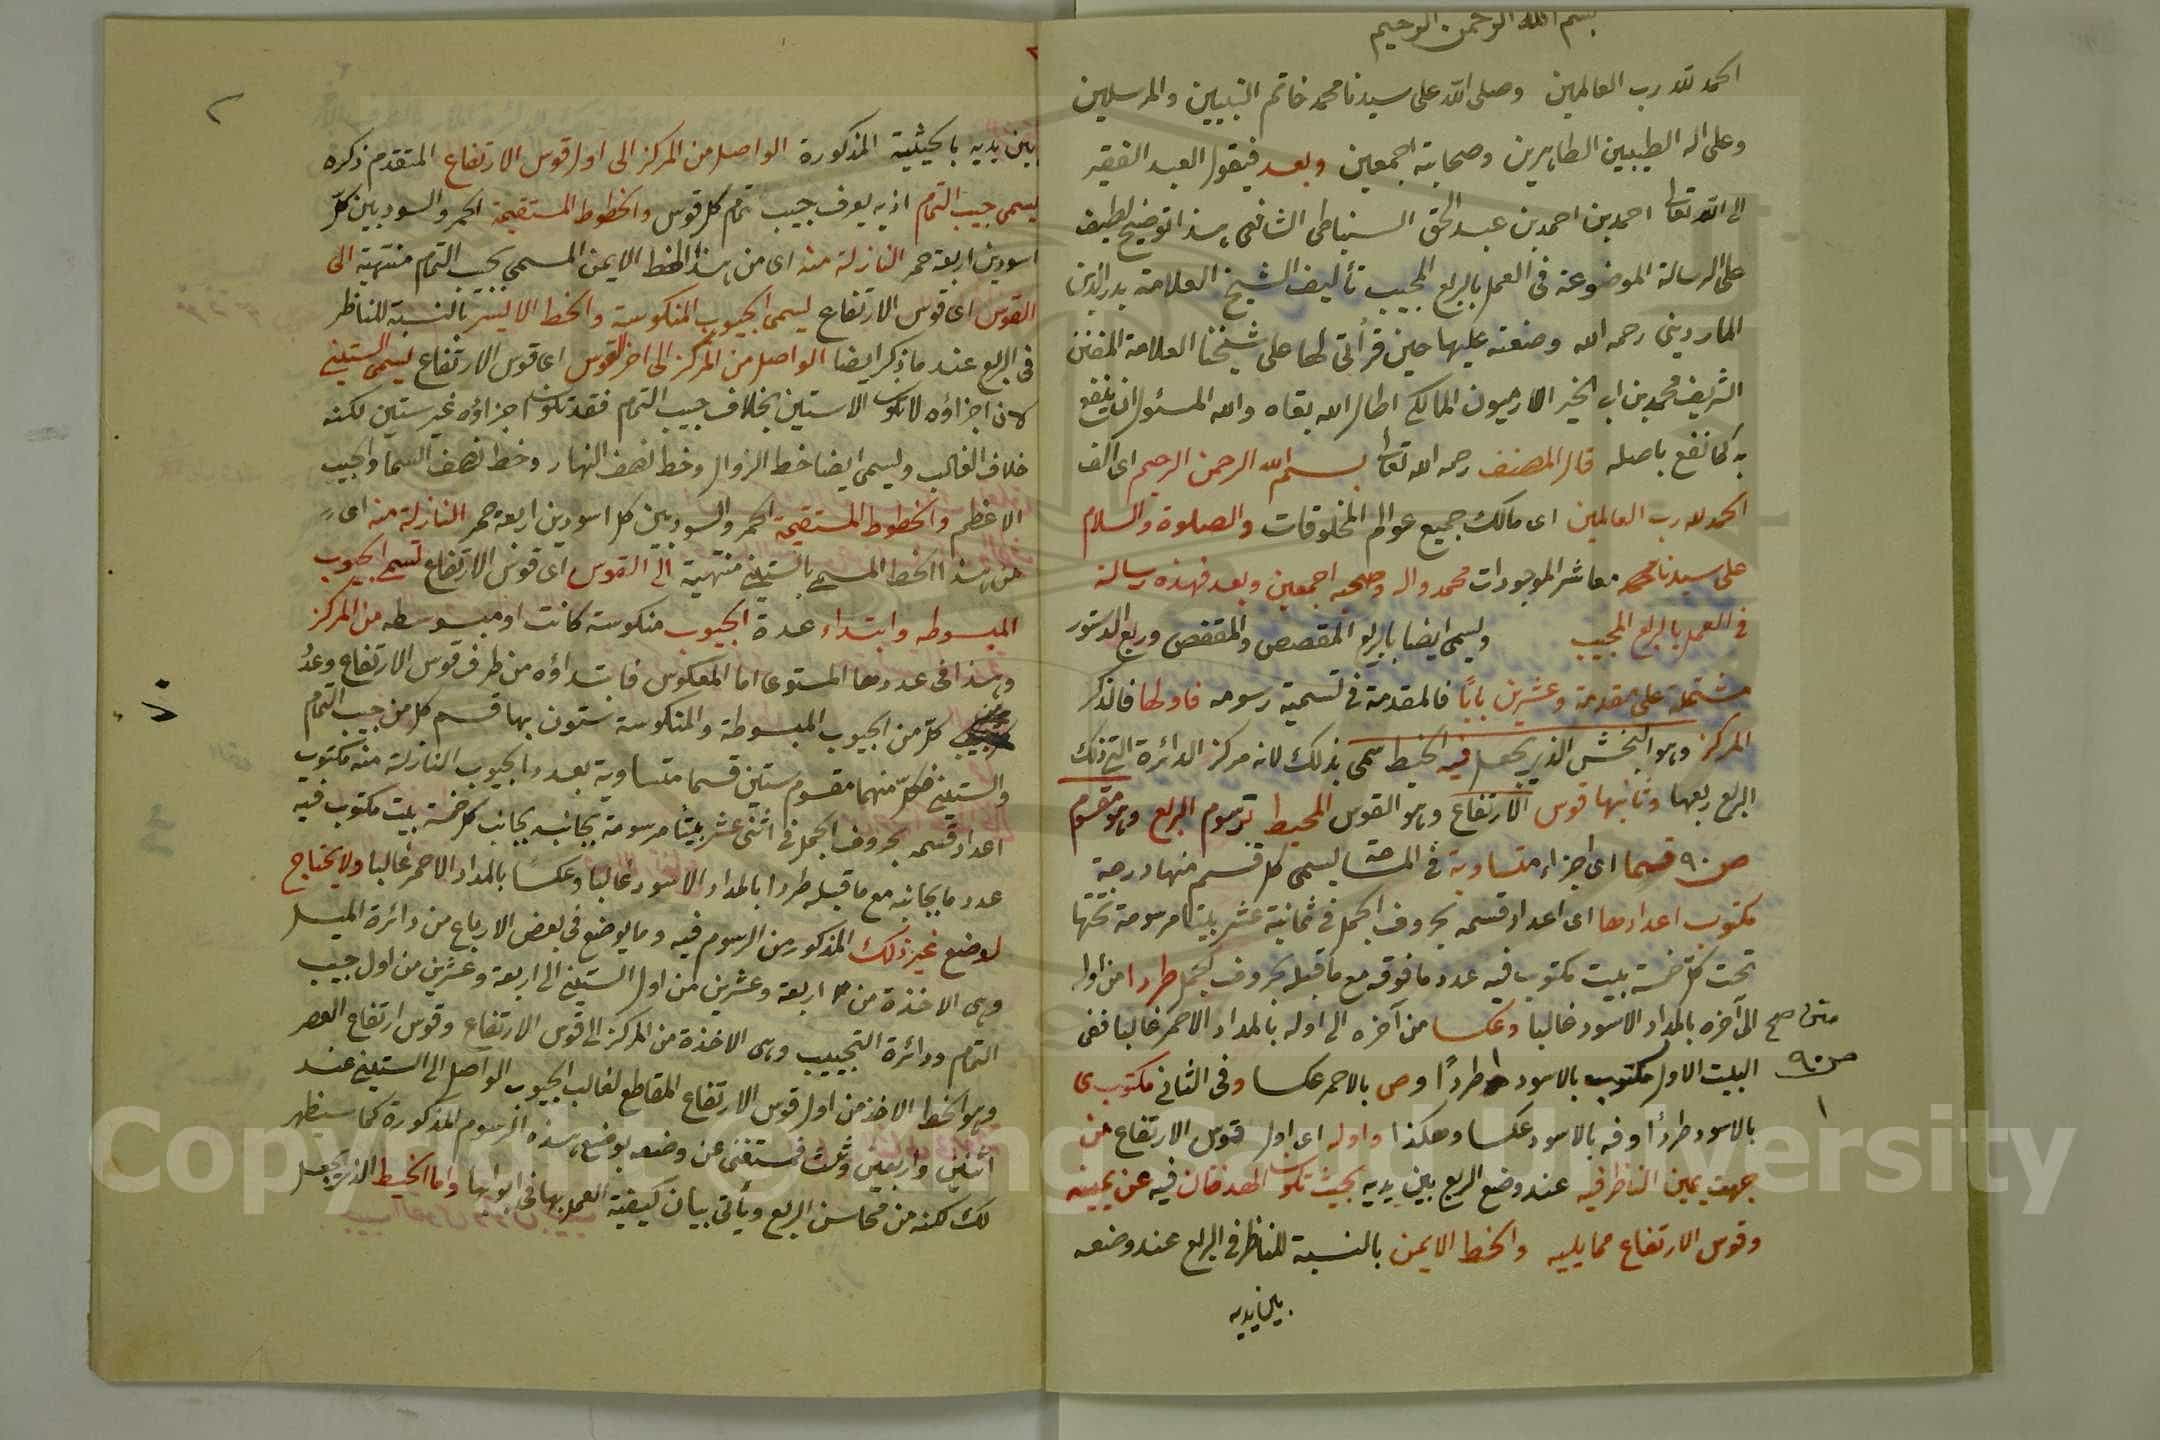 بسم الله الرحمن الرحيم
الحمد لله رب العالمين وصلى الله على سيدنا محمد خاتم النبيين والمرسلين
وعلى اله الطيبين الطاهرين وصحابته اجمعين وبعد فيقول العبد الفقير
الى الله تعالى احمد بن احمد بن عبد الحق السنباطى الشافعى هذا توضيح لطيف
على الرسالة الموضوعة فى العمل بالربع المجيب تأليف الشيخ العلامة بدر الدين
الماردينى رحمه الله وضعته عليها حين قرأتى لها على شيخنا العلامة المفنن
الشريف محمد بن ابى الخير الارميون المالكى اطال الله بقاه والله المسئول ان ينفع
به كما نفع باصله قال المصنف رحمه الله تعالى بسم الله الرحمن الرحيم اى الف
الحمد لله رب العالمين اى مالك جميع عوالم المخلوقات والصلوة والسلام
على سيدنا محمد معاشر الموجودات محمد واله وصحبه اجمعين وبعد فهذه رسالة
فى العمل بالربع المجيب ويسمى ايضا بالربع المقصص والمقفص وربع الدستور
مشتملة على مقدمة وعشرين بابًا فالمقدمة فى تسمية رسومه فاولها فالذكر
المركز وهو البخش الذى يجعل فيه الخيط سمى بذلك لانه مركز الدائرة التى ذلك
الربع ربعها وثانيها قوس الارتفاع وهو القوس المحيط برسوم الربع وهو مقسوم
ص ٩٠ قسما اى اجزاء متساوية فى المساحة يسمى كل قسم منها درجة
مكتوب اعدادها اى اعداد قسمه بحروف الجمل فى ثمانية عشر بيتا مرسومة تحتها
تحت كل خمسة بيت مكتوب فيه عدد ما فوقه مع ما قبله بحروف الجمل طردا من اوله
الى آخره بالمداد الاسود غالبا وعكسا من آخره الى اوله بالمداد الاحمر غالبا ففى
متن صح
ص ٩٠
١
البيت الاول مكتوب بالاسود ه طردًا وص بالاحمر عكسا وفى الثانى مكتوب ى
بالاسود طردًا وفه بالاسود عكسا وهكذا واوله اى اول قوس الارتفاع من
جهة يمين الناظر فيه عند وضع الربع بين يديه بحيث تكون الهدفتان فيه عن يمينه
وقوس الارتفاع مما يليه والخط الايمن بالنسبة للناظر فى الربع عند وضعه
بين يديه
٢
بين يديه بالحيثية المذكورة الواصل من المركز الى اول قوس الارتفاع المتقدم ذكره
يسمى جيب التمام اذ به يعرف جيب تمام كل قوس والخطوط المستقيمة الحمر والسود بين كل
اسودين اربعة حمر النازلة منه اى من هذا الخط الايمن المسمى بجيب التمام منتهية الى
القوس اى قوس الارتفاع يسمى الجيوب المنكوسة والخط الاليسر بالنسبة للناظر
فى الربع عند ما ذكر ايضا الواصل من المركز الى اخر القوس اى قوس الارتفاع يسمى الستينى
لان اجزاؤه لا تكون الا ستين بخلاف جيب التمام فقد تكون اجزاؤه غير ستين لكنه
خلاف الغالب ويسمى ايضا خط الزوال وخط نصف النهار وخط نصف السما والجيب
الاعظم والخطوط المستقيمة الحمر والسود بين كل اسودين اربعة حمر النازلة منه اى
من هذا الخط المسمى بالستينى منتهية الى القوس اى قوس الارتفاع تسمى الجيوب
المبسوطه وابتداء عدة الجيوب منكوسة كانت او مبسوطه من المركز
وهذا فى عددها المستوى اما المعكوس فابتداؤه من طرف قوس الارتفاع وعدُ
كل من الجيوب المبسوطة والمنكوسة ستون بها قسم كل من جيب التمام
والستينى فكل منهما مقسوم ستين قسما متساوية بعدد الجيوب النازلة منه مكتوب
اعداد قسمه بحروف الجمل فى اثنى عشر بيتًا مرسومة بجانبه بجانب كل خمسة بيت مكتوب فيه
عدد ما بجانبه مع ما قبله طردا بالمداد الاسود غالبا وعكسًا بالمداد الاحمر غالبا ولا يحتاج
لوضع غير ذلك المذكور من الرسوم فيه وما يوضع فى بعض الارباع من دائرة الميل
وهى الاخذة من اربعة وعشرين من اول الستينى الى اربعة وعشرين من اول جيب
التمام ودائرة التجييب وهى الاخذة من المركز الى قوس الارتفاع وقوس ارتفاع العصر
وهو الخط الاخذ من اول قوس الارتفاع المقاطع لغالب الجيوب الواصل الى الستينى عند
اثنين واربعين وثلث فمستغنى عن وضعه بوضع هذه الرسوم المذكورة كما سيظهر
لك لكنه من محاسن الربع ويأتى بيان كيفية العمل بها فى ابوابها واما الخيط الذى يجعل
Copyright © King Saud University